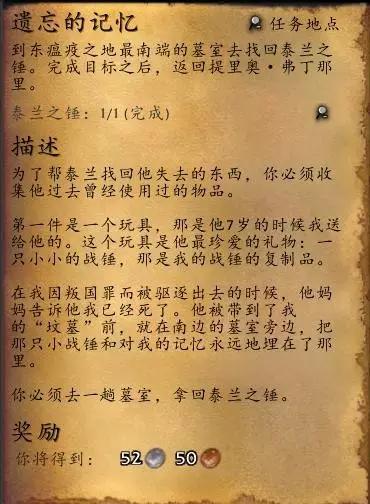 遗忘的记忆 任务地点
到东瘟疫之地最南端的墓室去找回泰兰之
锤。完成目标之后，返回提里奥·弗丁那
里。
泰兰之锤：1/1（完成）
描述
为了帮泰兰找回他失去的东西，你必须收
集他过去曾经使用过的物品。
第一件是一个玩具，那是他7岁的时候我送
给他的。这个玩具是他最珍爱的礼物：一
只小小的战锤，那是我的战锤的复制品。
在我因叛国罪而被驱逐出去的时候，他妈
妈告诉他我已经死了。他被带到了我
的“坟墓”前，就在南边的墓室旁边，把
那只小战锤和对我的记忆永远地埋在了那
里。
你必须去一趟墓室，拿回泰兰之锤。
奖励
你将得到： 52 50